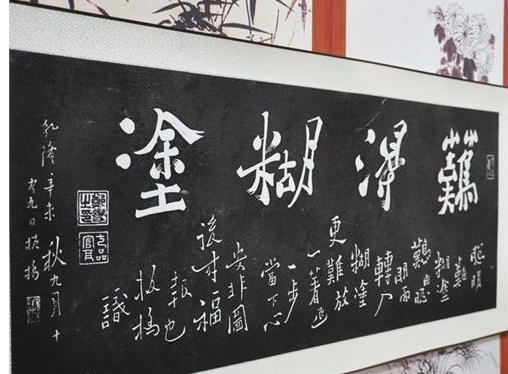 難得糊塗
聰明
難
糊塗
難由聰
明而
轉入
糊塗
更難放
一著退
一步
當下心
安非圖
後來福
報也
板橋
識
乾隆辛未秋九月十
有九日板橋